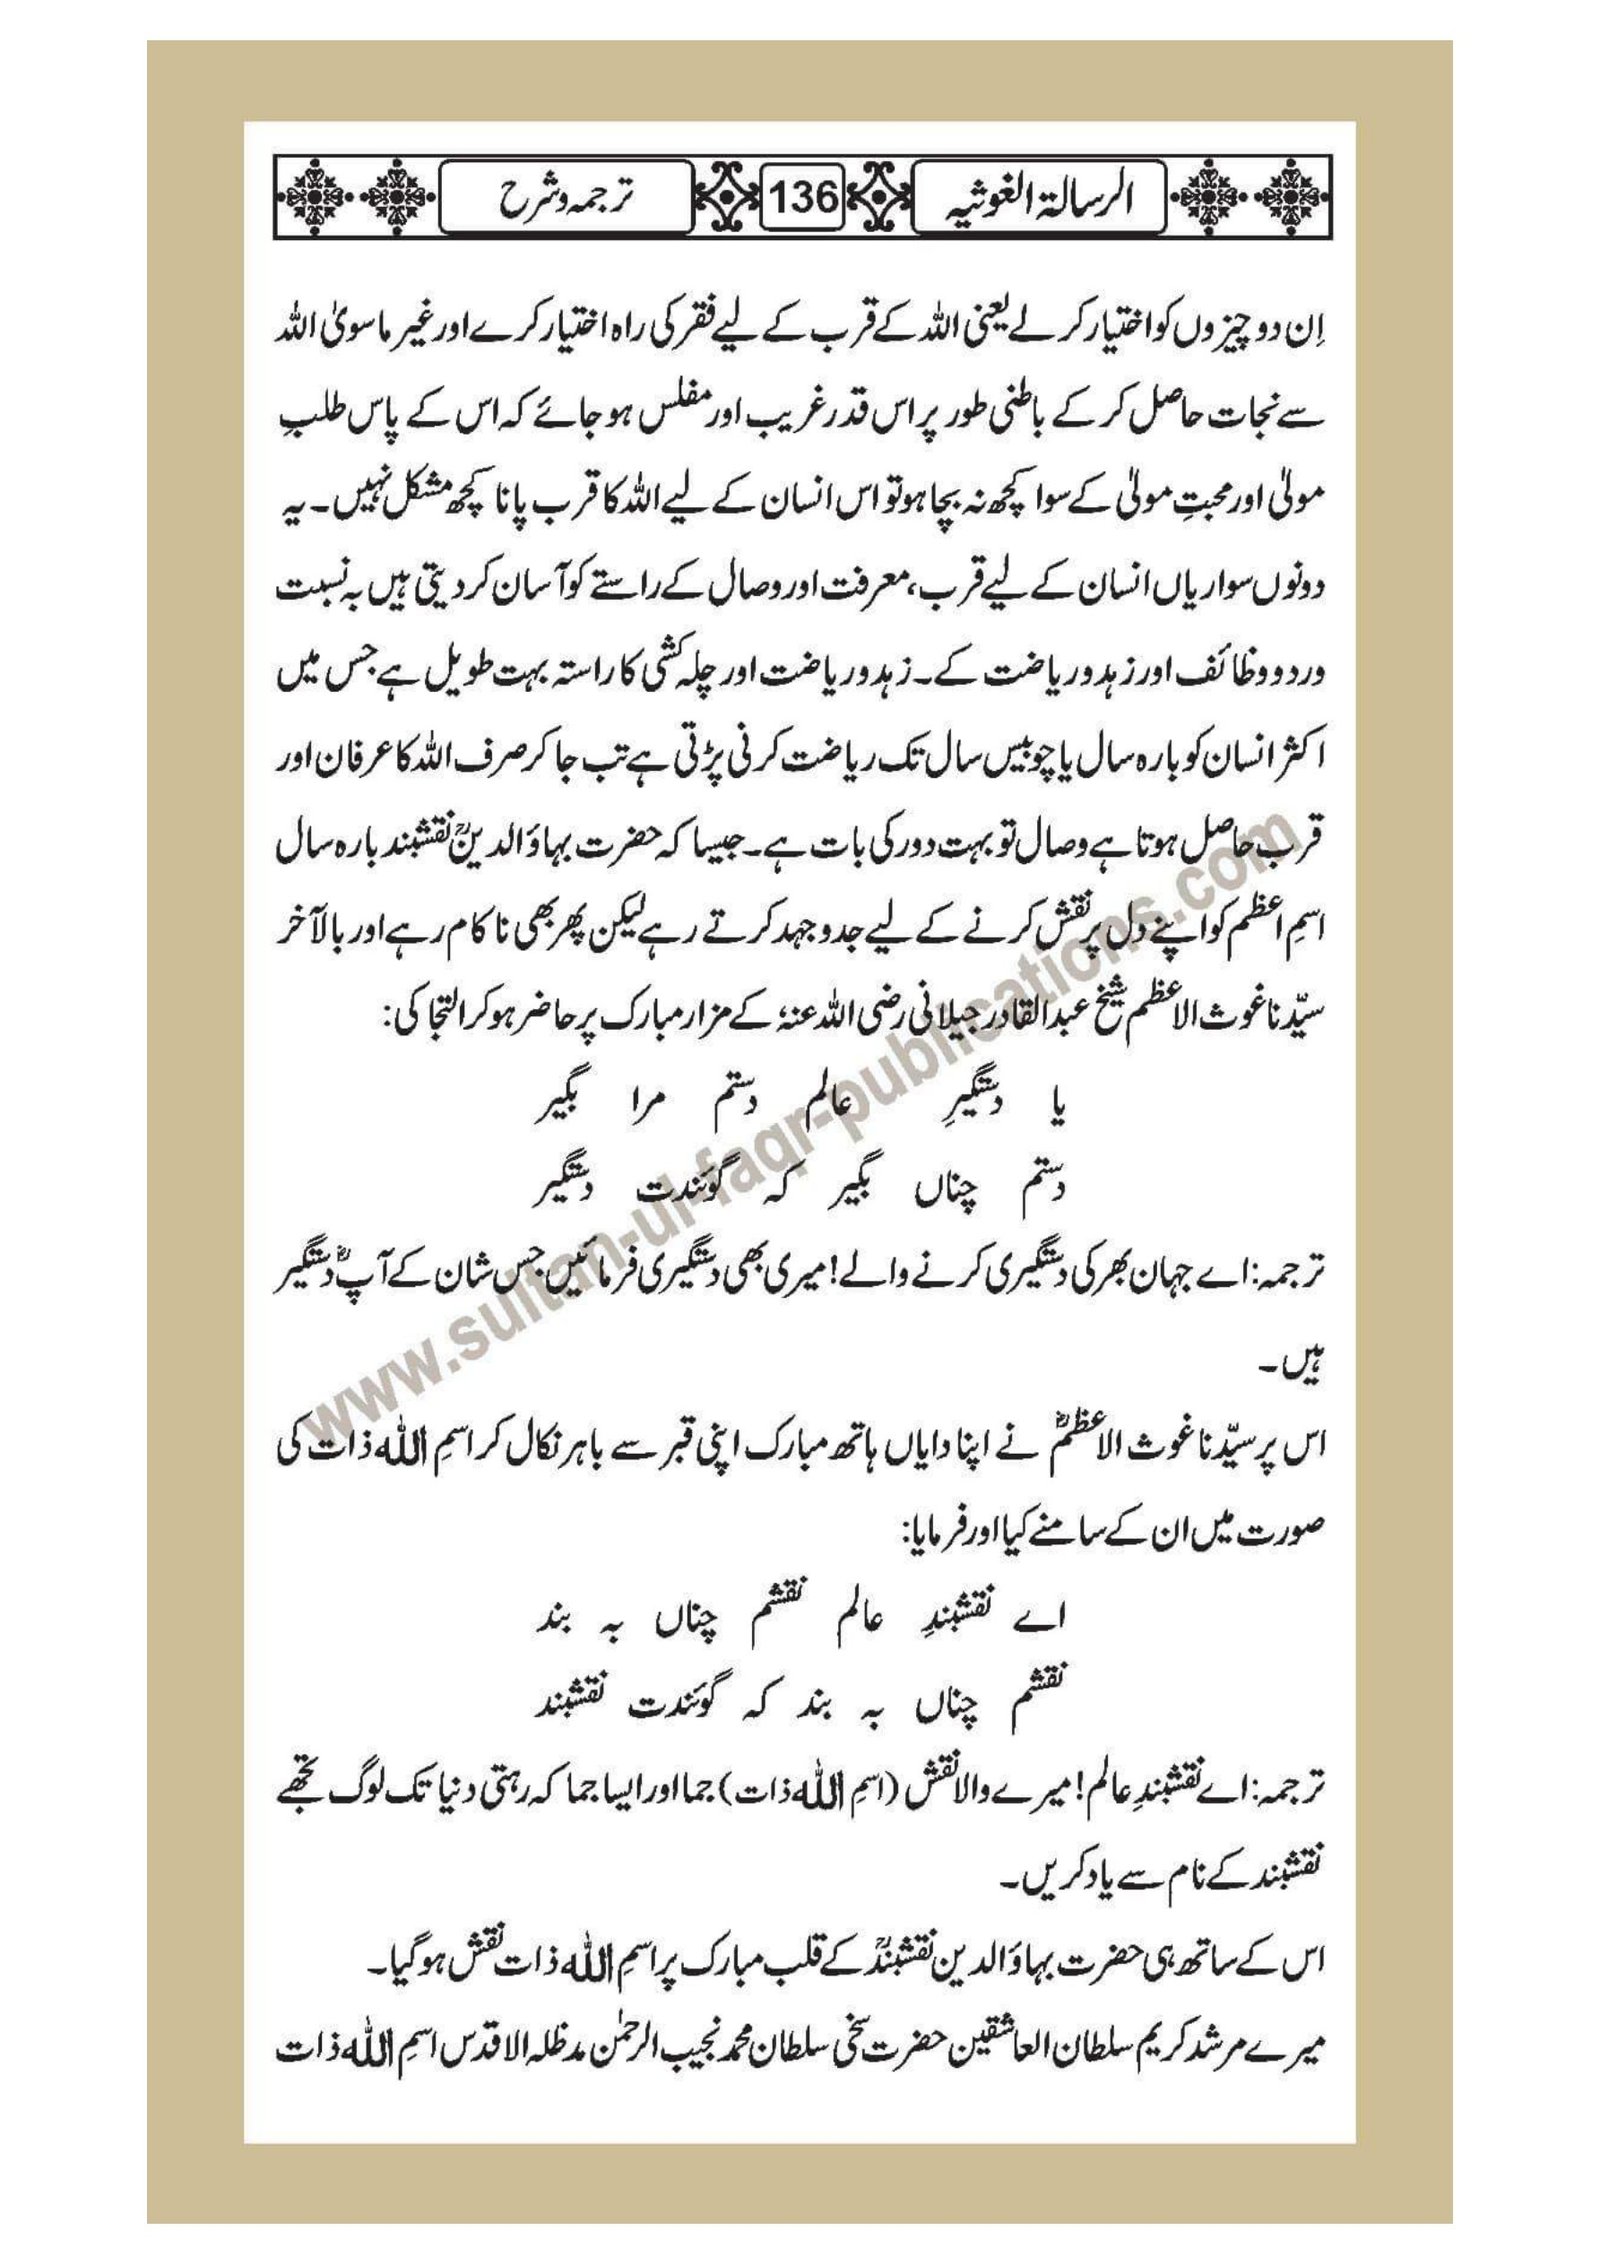 الرسالۃ الغوثیہ 136 ترجمہ و شرح
اِن دو چیزوں کو اختیار کر لے یعنی اللہ کے قرب کے لیے فقر کی راہ اختیار کرے اور غیر ماسویٰ اللہ
سے نجات حاصل کر کے باطنی طور پر اس قدر غریب اور مفلس ہو جائے کہ اس کے پاس طلبِ
مولیٰ اور محبتِ مولیٰ کے سوا کچھ نہ بچا ہو تو اس انسان کے لیے اللہ کا قرب پانا کچھ مشکل نہیں۔ یہ
دونوں سواریاں انسان کے لیے قرب، معرفت اور وصال کے راستے کو آسان کر دیتی ہیں بہ نسبت
ورد و وظائف اور زہد و ریاضت کے۔ زہد و ریاضت اور چلہ کشی کا راستہ بہت طویل ہے جس میں
اکثر انسان کو بارہ سال یا چوبیس سال تک ریاضت کرنی پڑتی ہے تب جا کر صرف اللہ کا عرفان اور
قرب حاصل ہوتا ہے وصال تو بہت دور کی بات ہے۔ جیسا کہ حضرت بہاؤ الدینؒ نقشبند بارہ سال
اسمِ اعظم کو اپنے دل پر نقش کرنے کے لیے جدوجہد کرتے رہے لیکن پھر بھی ناکام رہے اور بالآخر
سیّدنا غوث الاعظم شیخ عبدالقادر جیلانی رضی اللہ عنہٗ کے مزار مبارک پر حاضر ہو کر التجا کی:
یا دستگیرِ عالم دستم مرا بگیر
دستم چناں بگیر کہ گوئندت دستگیر
ترجمہ: اے جہان بھر کی دستگیری کرنے والے! میری بھی دستگیری فرمائیں جس شان کے آپؓ دستگیر
ہیں۔
اس پر سیّدنا غوث الاعظمؓ نے اپنا دایاں ہاتھ مبارک اپنی قبر سے باہر نکال کر اسمِ اللہ ذات کی
صورت میں ان کے سامنے کیا اور فرمایا:
اے نقشبندِ عالم نقشم چناں بہ بند
نقشم چناں بہ بند کہ گوئندت نقشبند
ترجمہ: اے نقشبندِ عالم! میرے والا نقش (اسمِ اللہ ذات) جما اور ایسا جما کہ رہتی دنیا تک لوگ تجھے
نقشبند کے نام سے یاد کریں۔
اس کے ساتھ ہی حضرت بہاؤ الدین نقشبندؒ کے قلب مبارک پر اسمِ اللہ ذات نقش ہو گیا۔
میرے مرشد کریم سلطان العاشقین حضرت سخی سلطان محمد نجیب الرحمٰن مدظلہ الاقدس اسمِ اللہ ذات
www.sultan-ul-faqr-publications.com